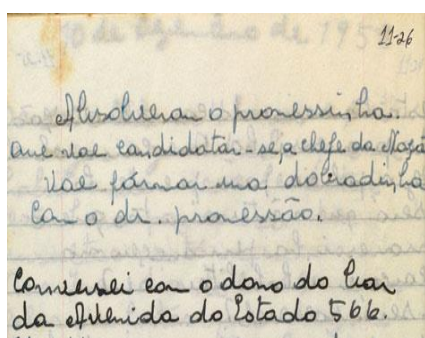 11-26
Absolveran o pronessinha.
Que vae candidatar-se, a chefe da Naçã
Vae fórmar una dobradinha
Con o dr. pronessão.
Conversei con o dono do bar
da Avenida do Estado 566.